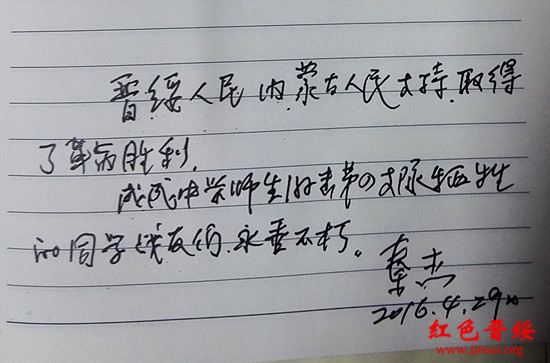 晋绥人民内蒙古人民支持取得
了革命胜利.
成成中学师生 为革命 牺牲
的同学战友们.永垂不朽。
秦杰
2016.4.29日
红色晋绥
www.jinsui.org